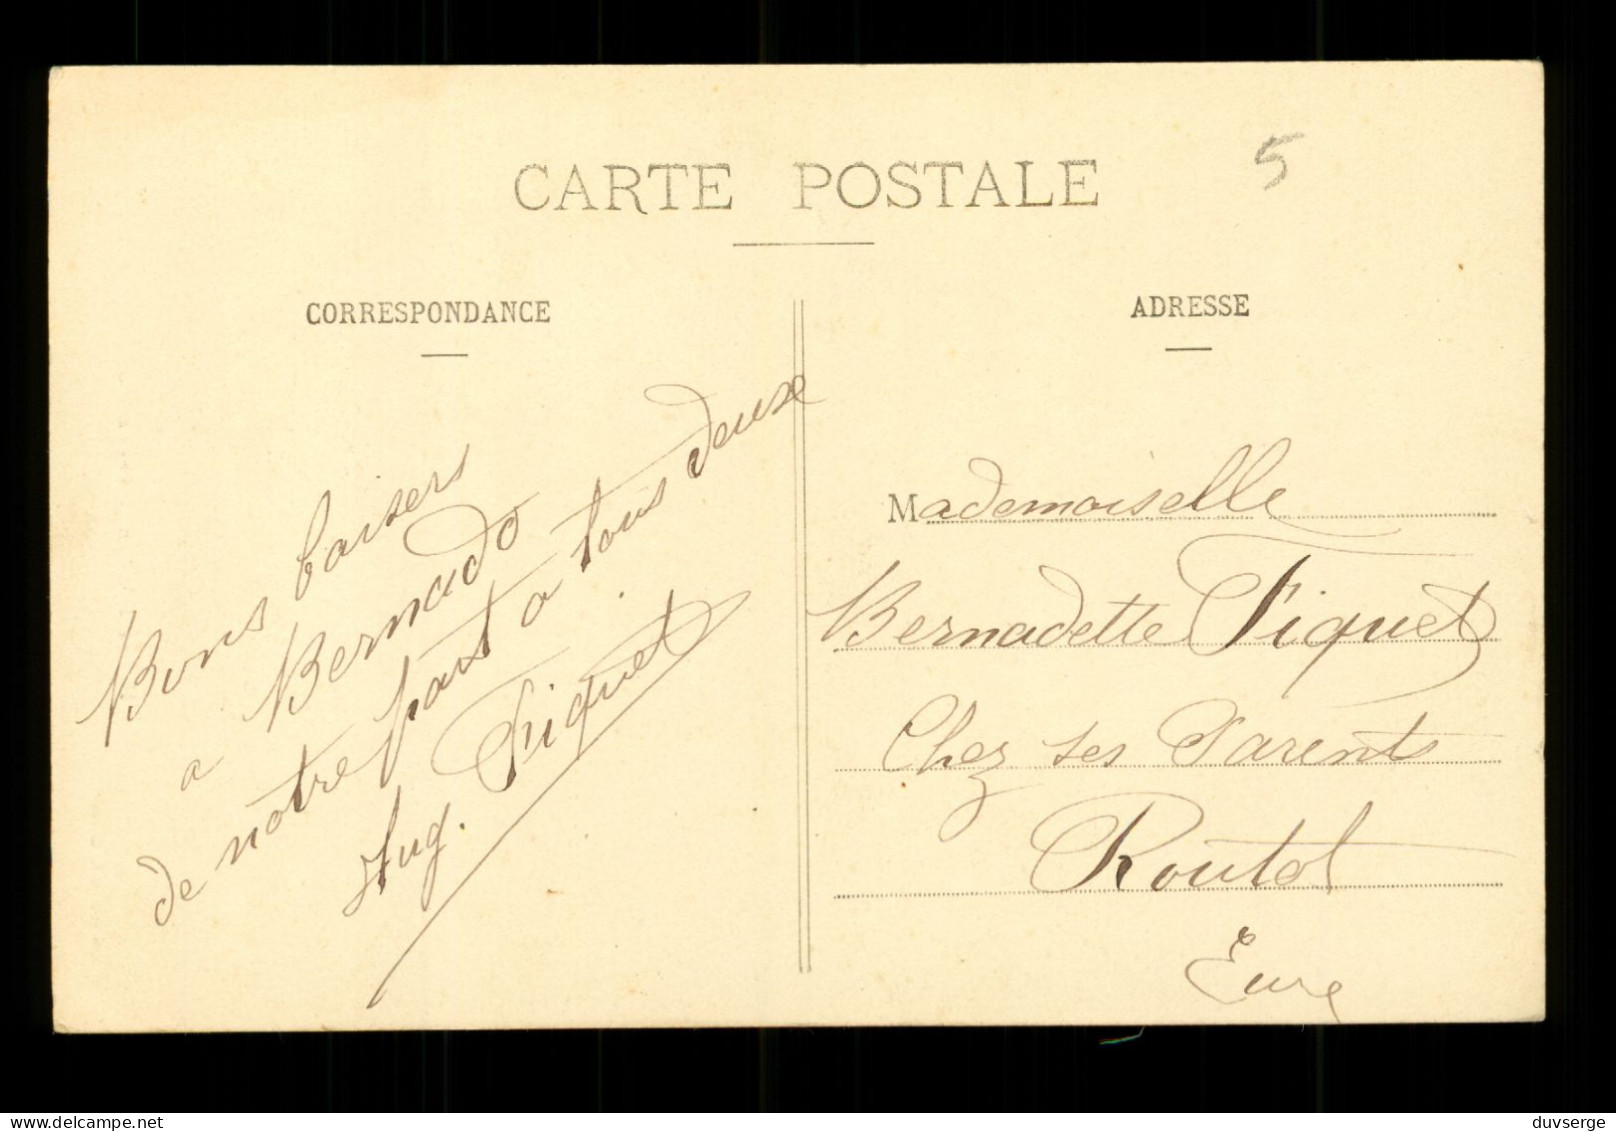 CARTE POSTALE
5
CORRESPONDANCE
Bons baisers
a Bernado
de notre part a tous deux
Aug. Fiquet
ADRESSE
Mademoiselle
Bernadette Fiquet
Chez ses Parents
Routot
Eure
www.delcampe.net
duvserge